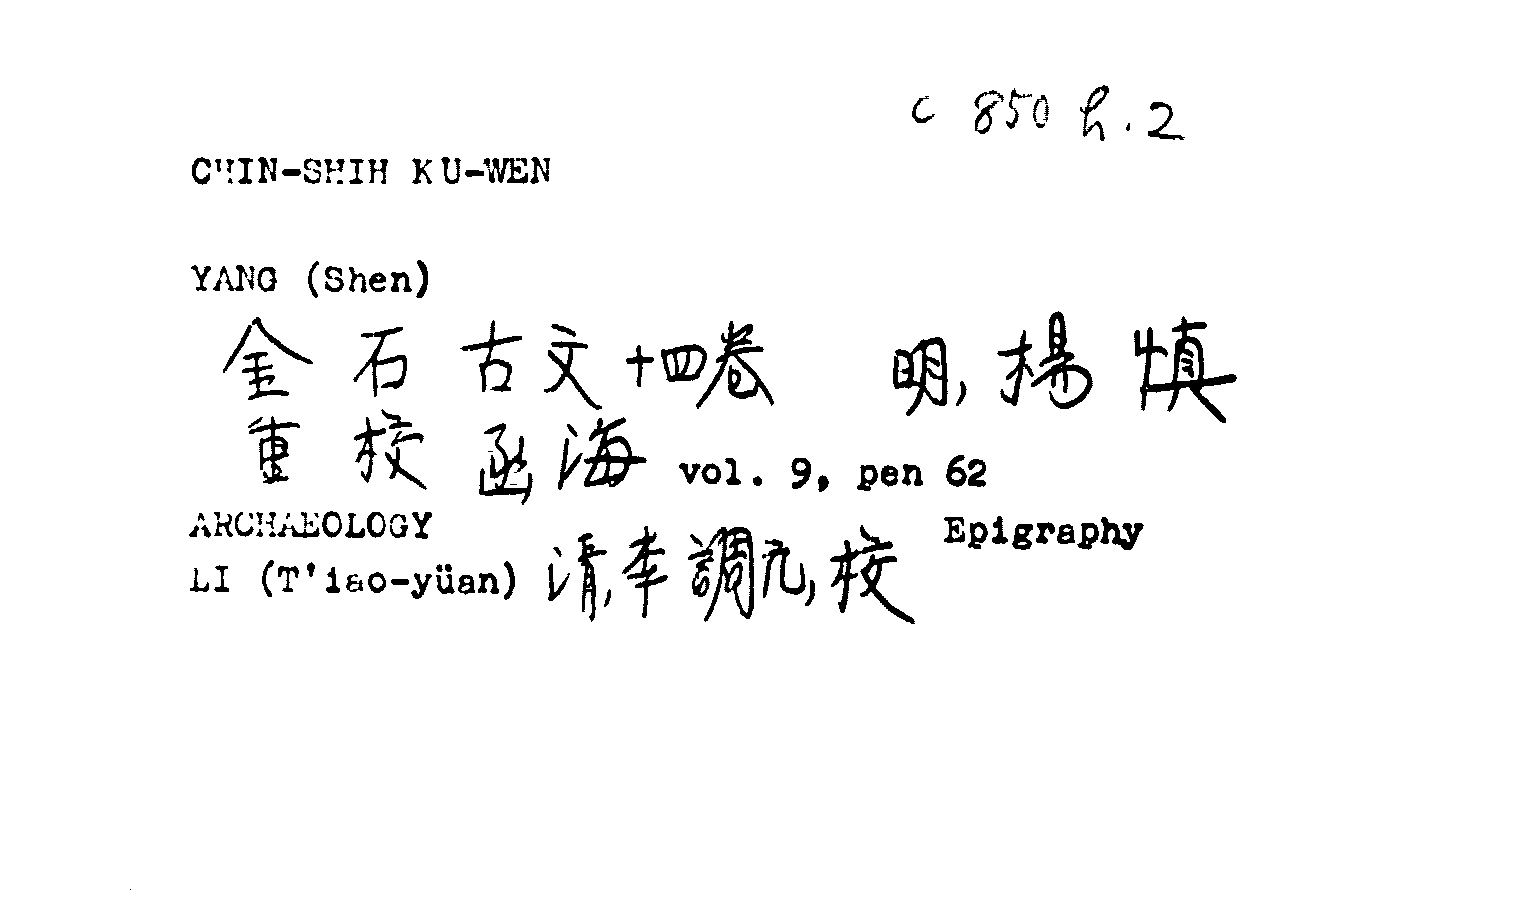 C 850 h.2
CHIN-SHIH KU-WEN
YANG (Shen)
金石古文十四卷 明,楊慎
重校函海 vol. 9, pen 62
ARCHAEOLOGY Epigraphy
LI (T'iao-yüan) 清,李調元,校